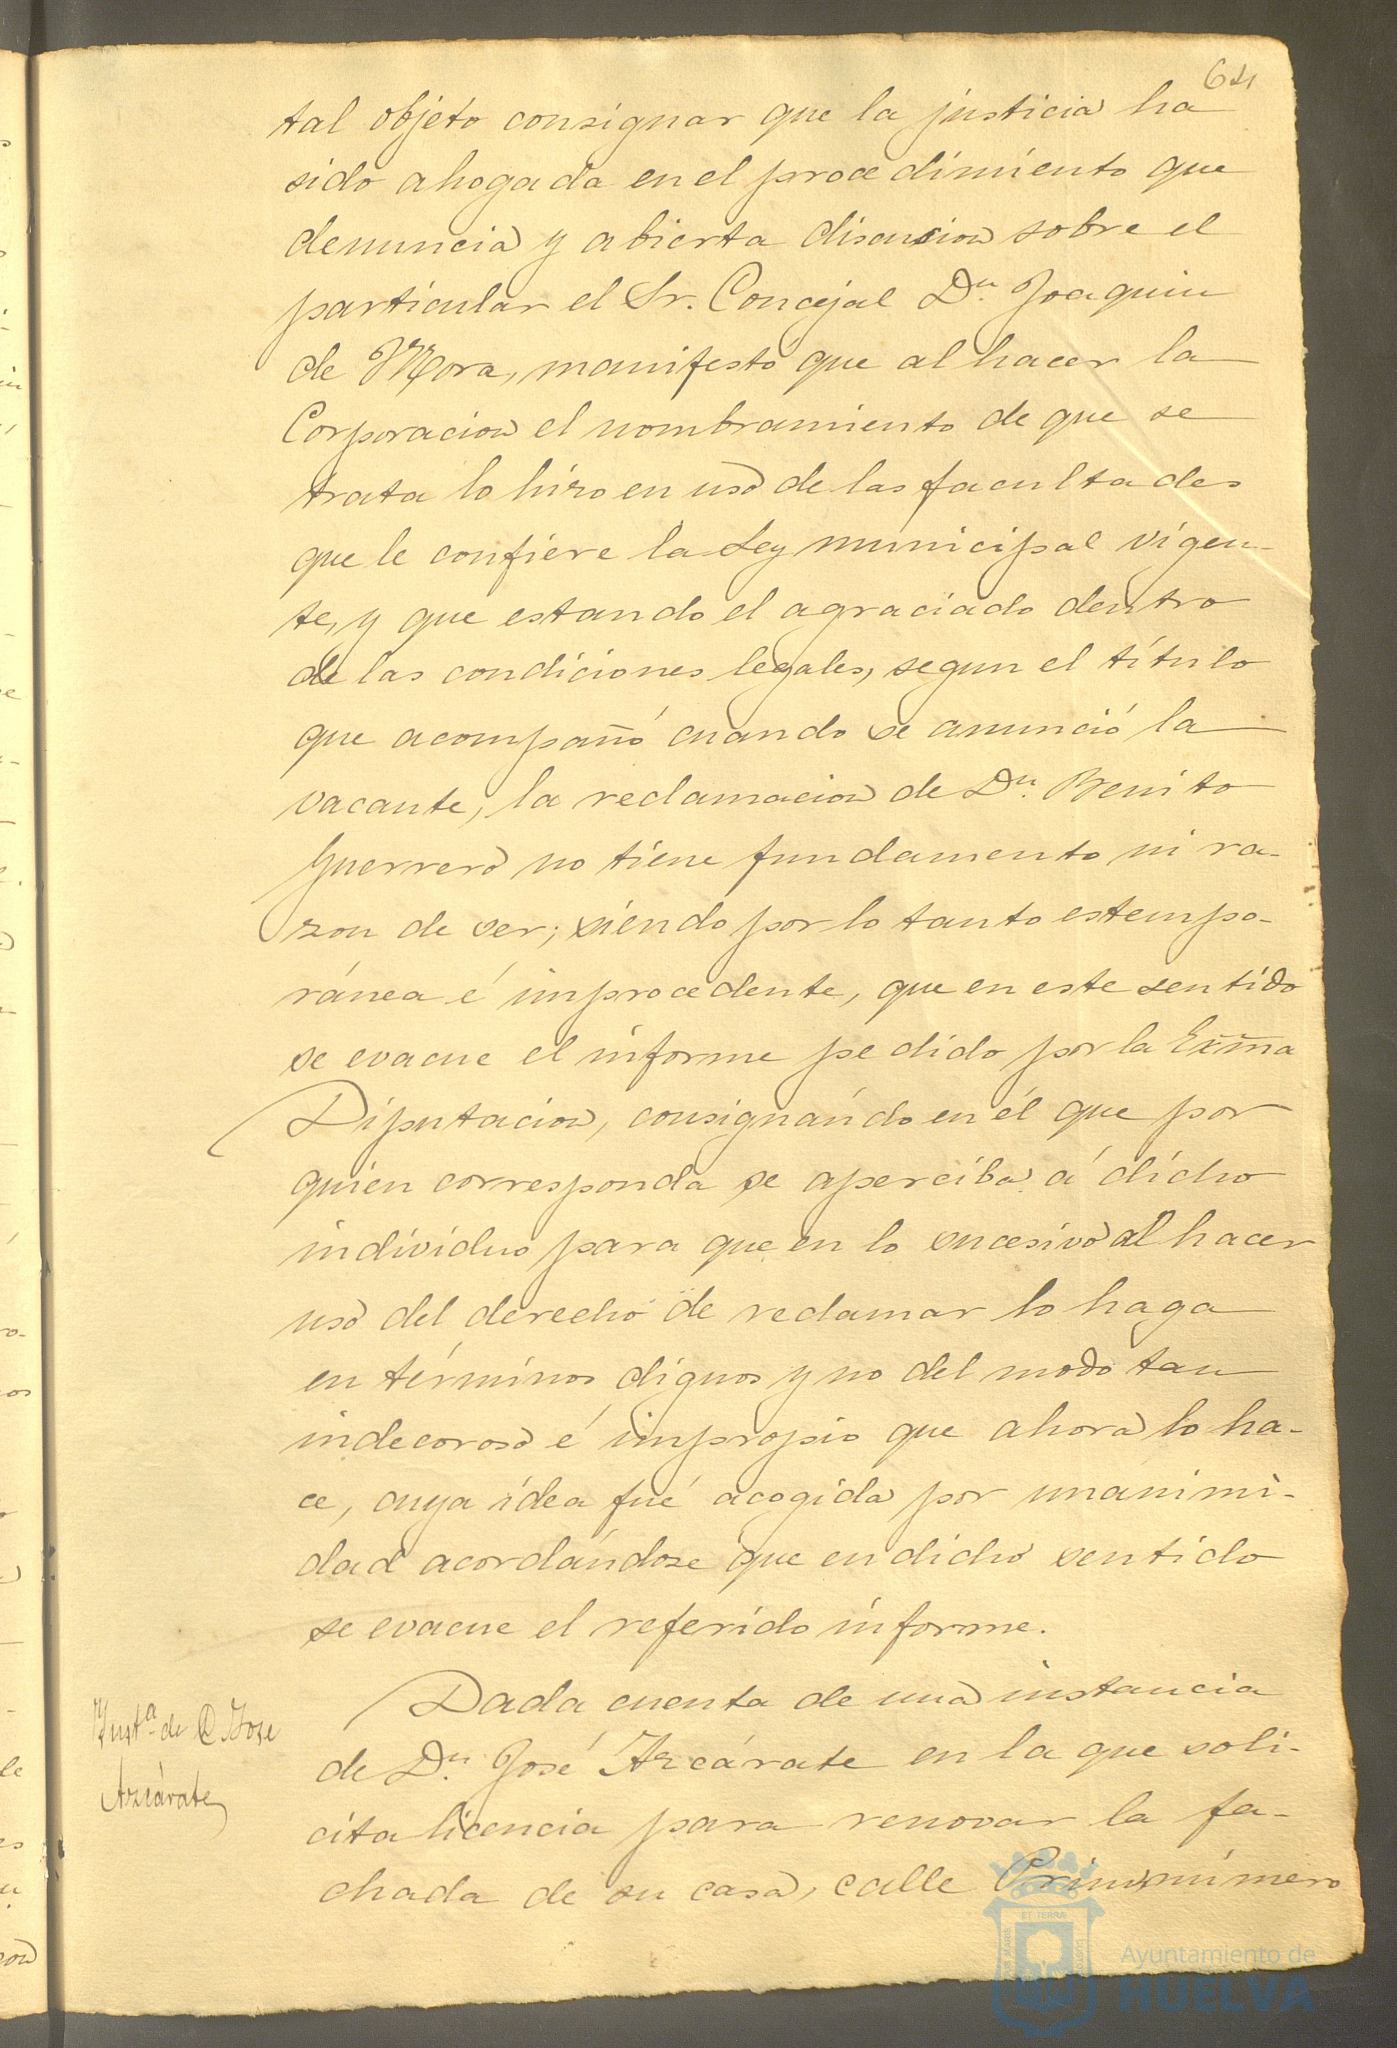 64
tal objeto consignar que la justicia ha
sido ahogada en el procedimiento que
denuncia y abierta discusion sobre el
particular el Sr. Concejal Dn. Joaquin
de Mora, manifestó que al hacer la
Corporacion el nombramiento de que se
trata lo hizo en uso de las facultades
que le confiere la Ley municipal vigen-
te, y que estando el agraciado dentro
de las condiciones legales, segun el título
que acompañó cuando se anunció la
vacante, la reclamacion de Dn. Benito
Guerrero no tiene fundamento ni ra-
zon de ser; siendo por lo tanto estempo-
ránea é improcedente, que en este sentido
se evacue el informe pedido por la Exma
Diputacion, consignando en él que por
quien corresponda se aperciba á dicho
individuo para que en lo sucesivo al hacer
uso del derecho de reclamar lo haga
en términos dignos y no del modo tan
indecoroso é impropio que ahora lo ha-
ce, cuya idea fué acogida por unanimi-
dad acordándose que en dicho sentido
se evacue el referido informe.
Insta. de D. Jose
Azcárate
Dada cuenta de una instancia
de Dn. José Azcárate en la que soli-
cita licencia para renovar la fa-
chada de su casa, calle Prim, número
Ayuntamiento de
HUELVA